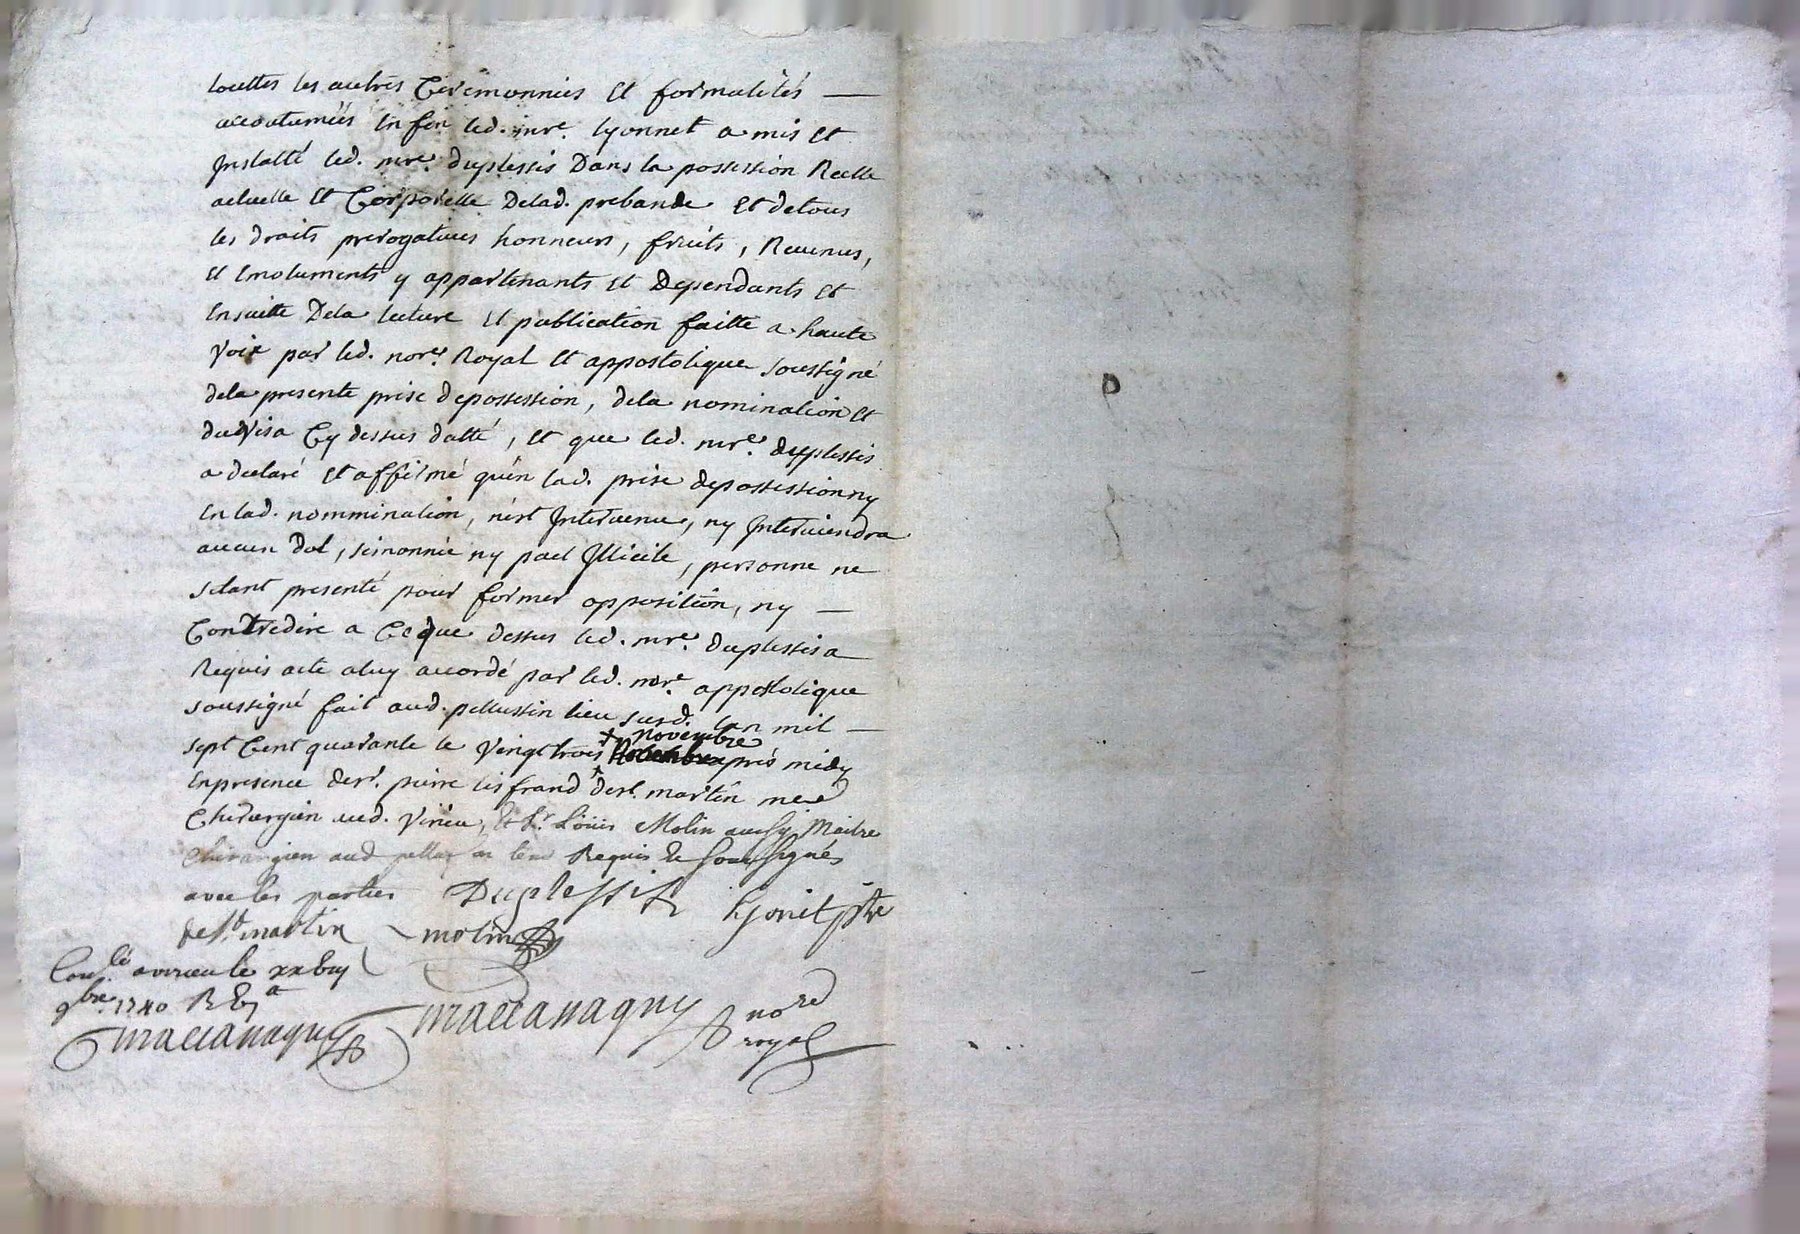 touttes les autres Ceremonnies et formalités —
accoutumées Enfin led. mre. lyonnet a mis et
Installé led. mre. duplessis Dans la possession Reelle
actuelle et Corporelle Delad. prebande et detous
les droits prerogatives honneurs, fruits, Revenus,
et Emoluments y appartenants et Dependants et
Ensuitte Dela lecture et publication faitte a haute
voix par led. nore. Royal et appostolique soussigné
dela presente prise depossession, dela nomination et
du Visa Cy dessus datté, et que led. mre. duplessis
a declaré et affirmé qu'en lad. prise depossession ny
En lad. nommination, n'est Intervenu, ny Interviendra
aucun dol, simonnie ny pact Illicite, personne ne
s'etant presenté pour former opposition, ny —
Contredire a Ceque dessus led. mre. duplessis a
Requis acte aluy accordé par led. nore. appostolique
soussigné fait aud. pellussin lieu susd. lan mil —
sept Cent quarante le vingt trois novembre après midy
Enpresence de sr. pierre lisfrand de st. martin me
Chirurgien aud. Virieu, et Sr. Loüis Molin aussy Maitre
chirurgien aud Requis & soussignés
avec les parties Duplessis lyonet ptre
de St. martin molin
Conlé a virieu le xxbuj
9bre 1740 R
maccanaquy maccanaquy nore
royal